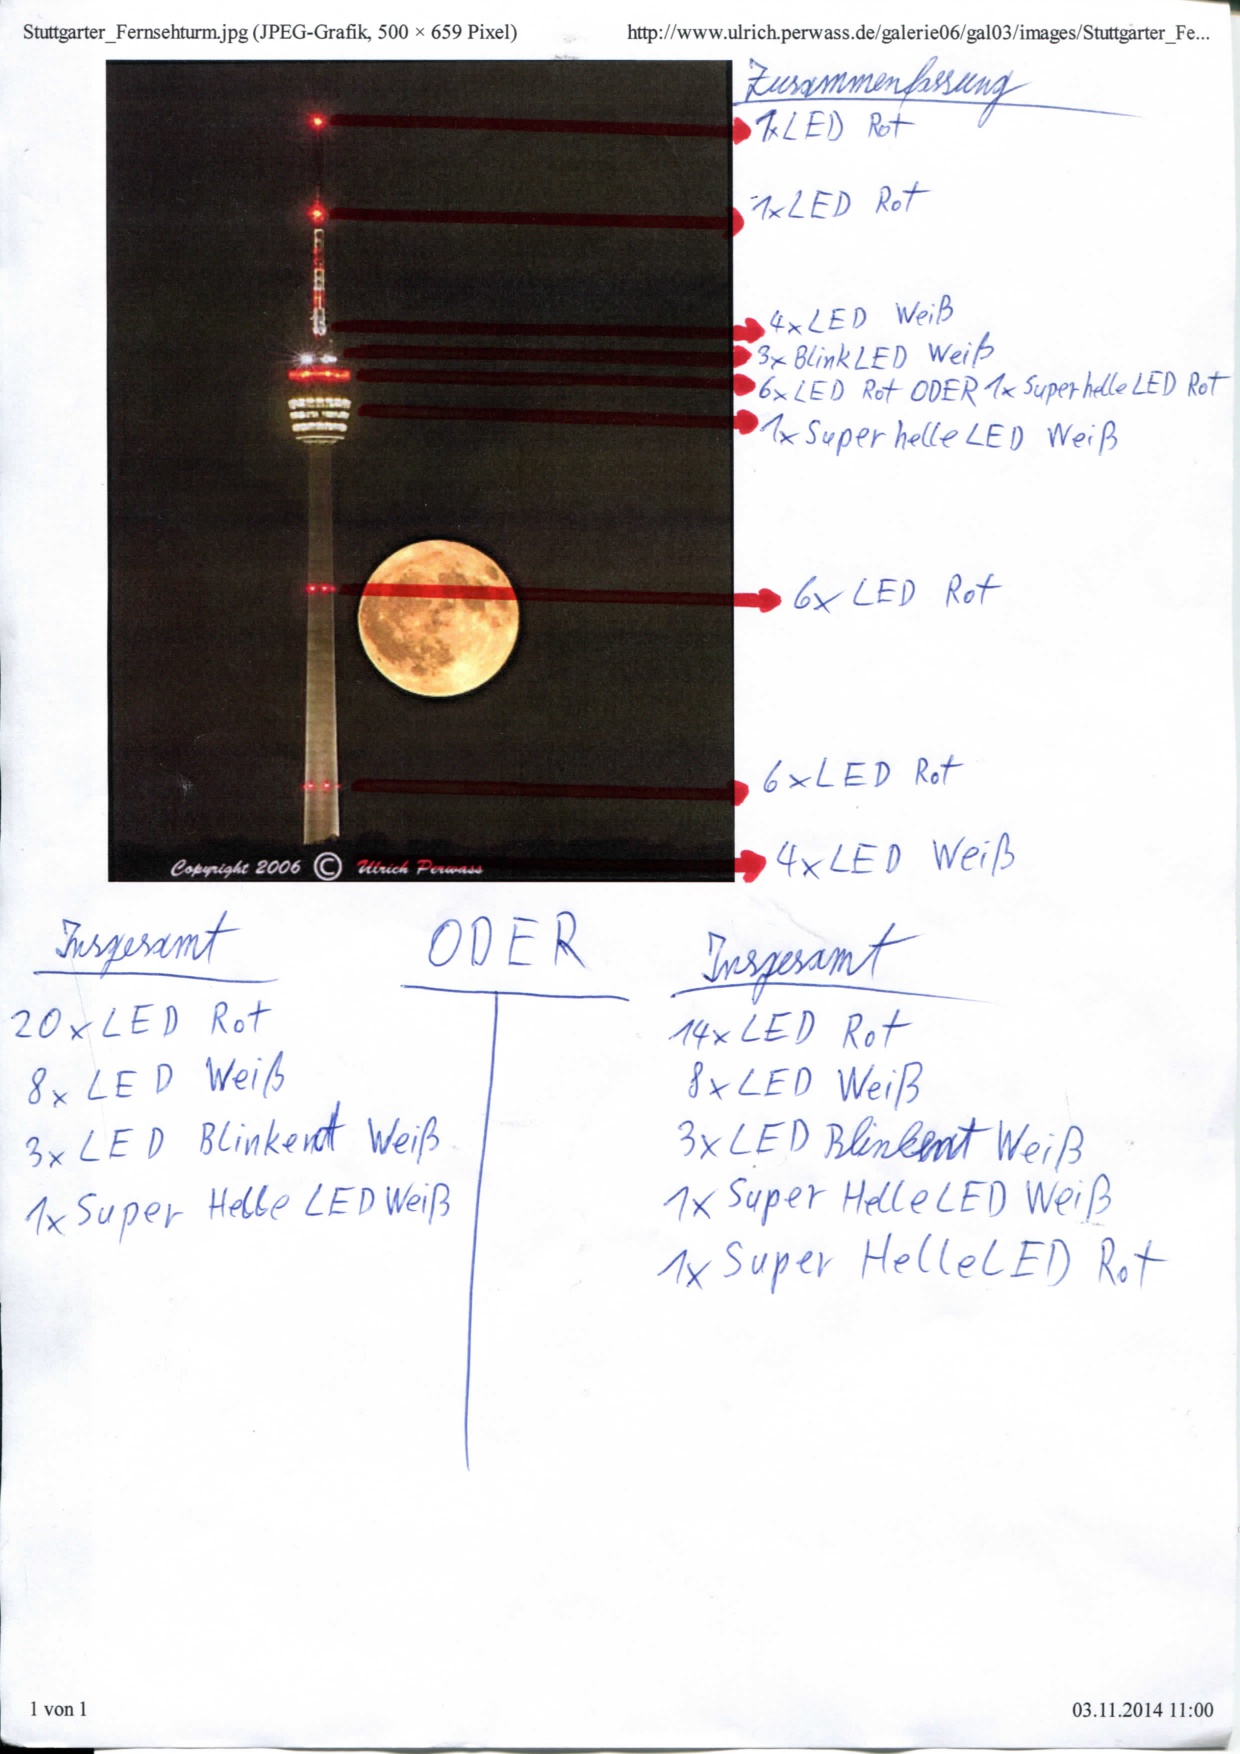 Stuttgarter_Fernsehturm.jpg (JPEG-Grafik, 500 × 659 Pixel) http://www.ulrich.perwass.de/galerie06/gal03/images/Stuttgarter_Fe...
Zusammenfassung
1x LED Rot
1x LED Rot
4x LED Weiß
3x Blink LED Weiß
6x LED Rot ODER 1x Superhelle LED Rot
1x Super helle LED Weiß
6x LED Rot
6x LED Rot
4x LED Weiß
Copyright 2006 © Ulrich Perwass
Insgesamt
20x LED Rot
8x LED Weiß
3x LED Blinkend Weiß
1x Super Helle LED Weiß
ODER
Insgesamt
14x LED Rot
8x LED Weiß
3x LED Blinkent Weiß
1x Super Helle LED Weiß
1x Super Helle LED Rot
1 von 1 03.11.2014 11:00